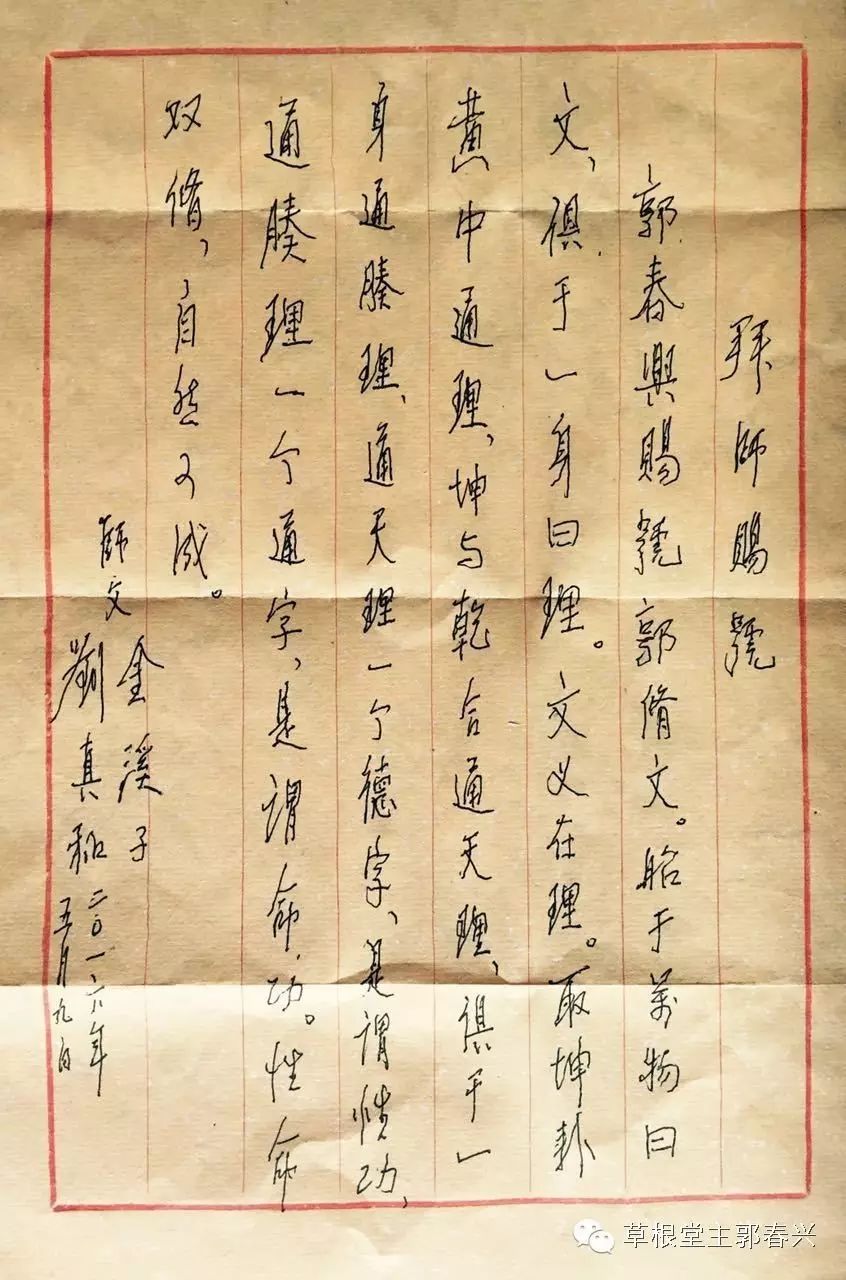 拜师赐號
郭春興赐號郭脩文。昭于萬物曰
文，俱于一身曰理。文义在理。取坤卦
黄中通理，坤与乾合通天理，俱于一
身通腠理，通天理一个德字，是谓性功，
通腠理一个通字，是谓命功。性命
双脩，自然可成。
师父
金溪子
劉真和
二〇一六年
五月九日
草根堂主郭春兴